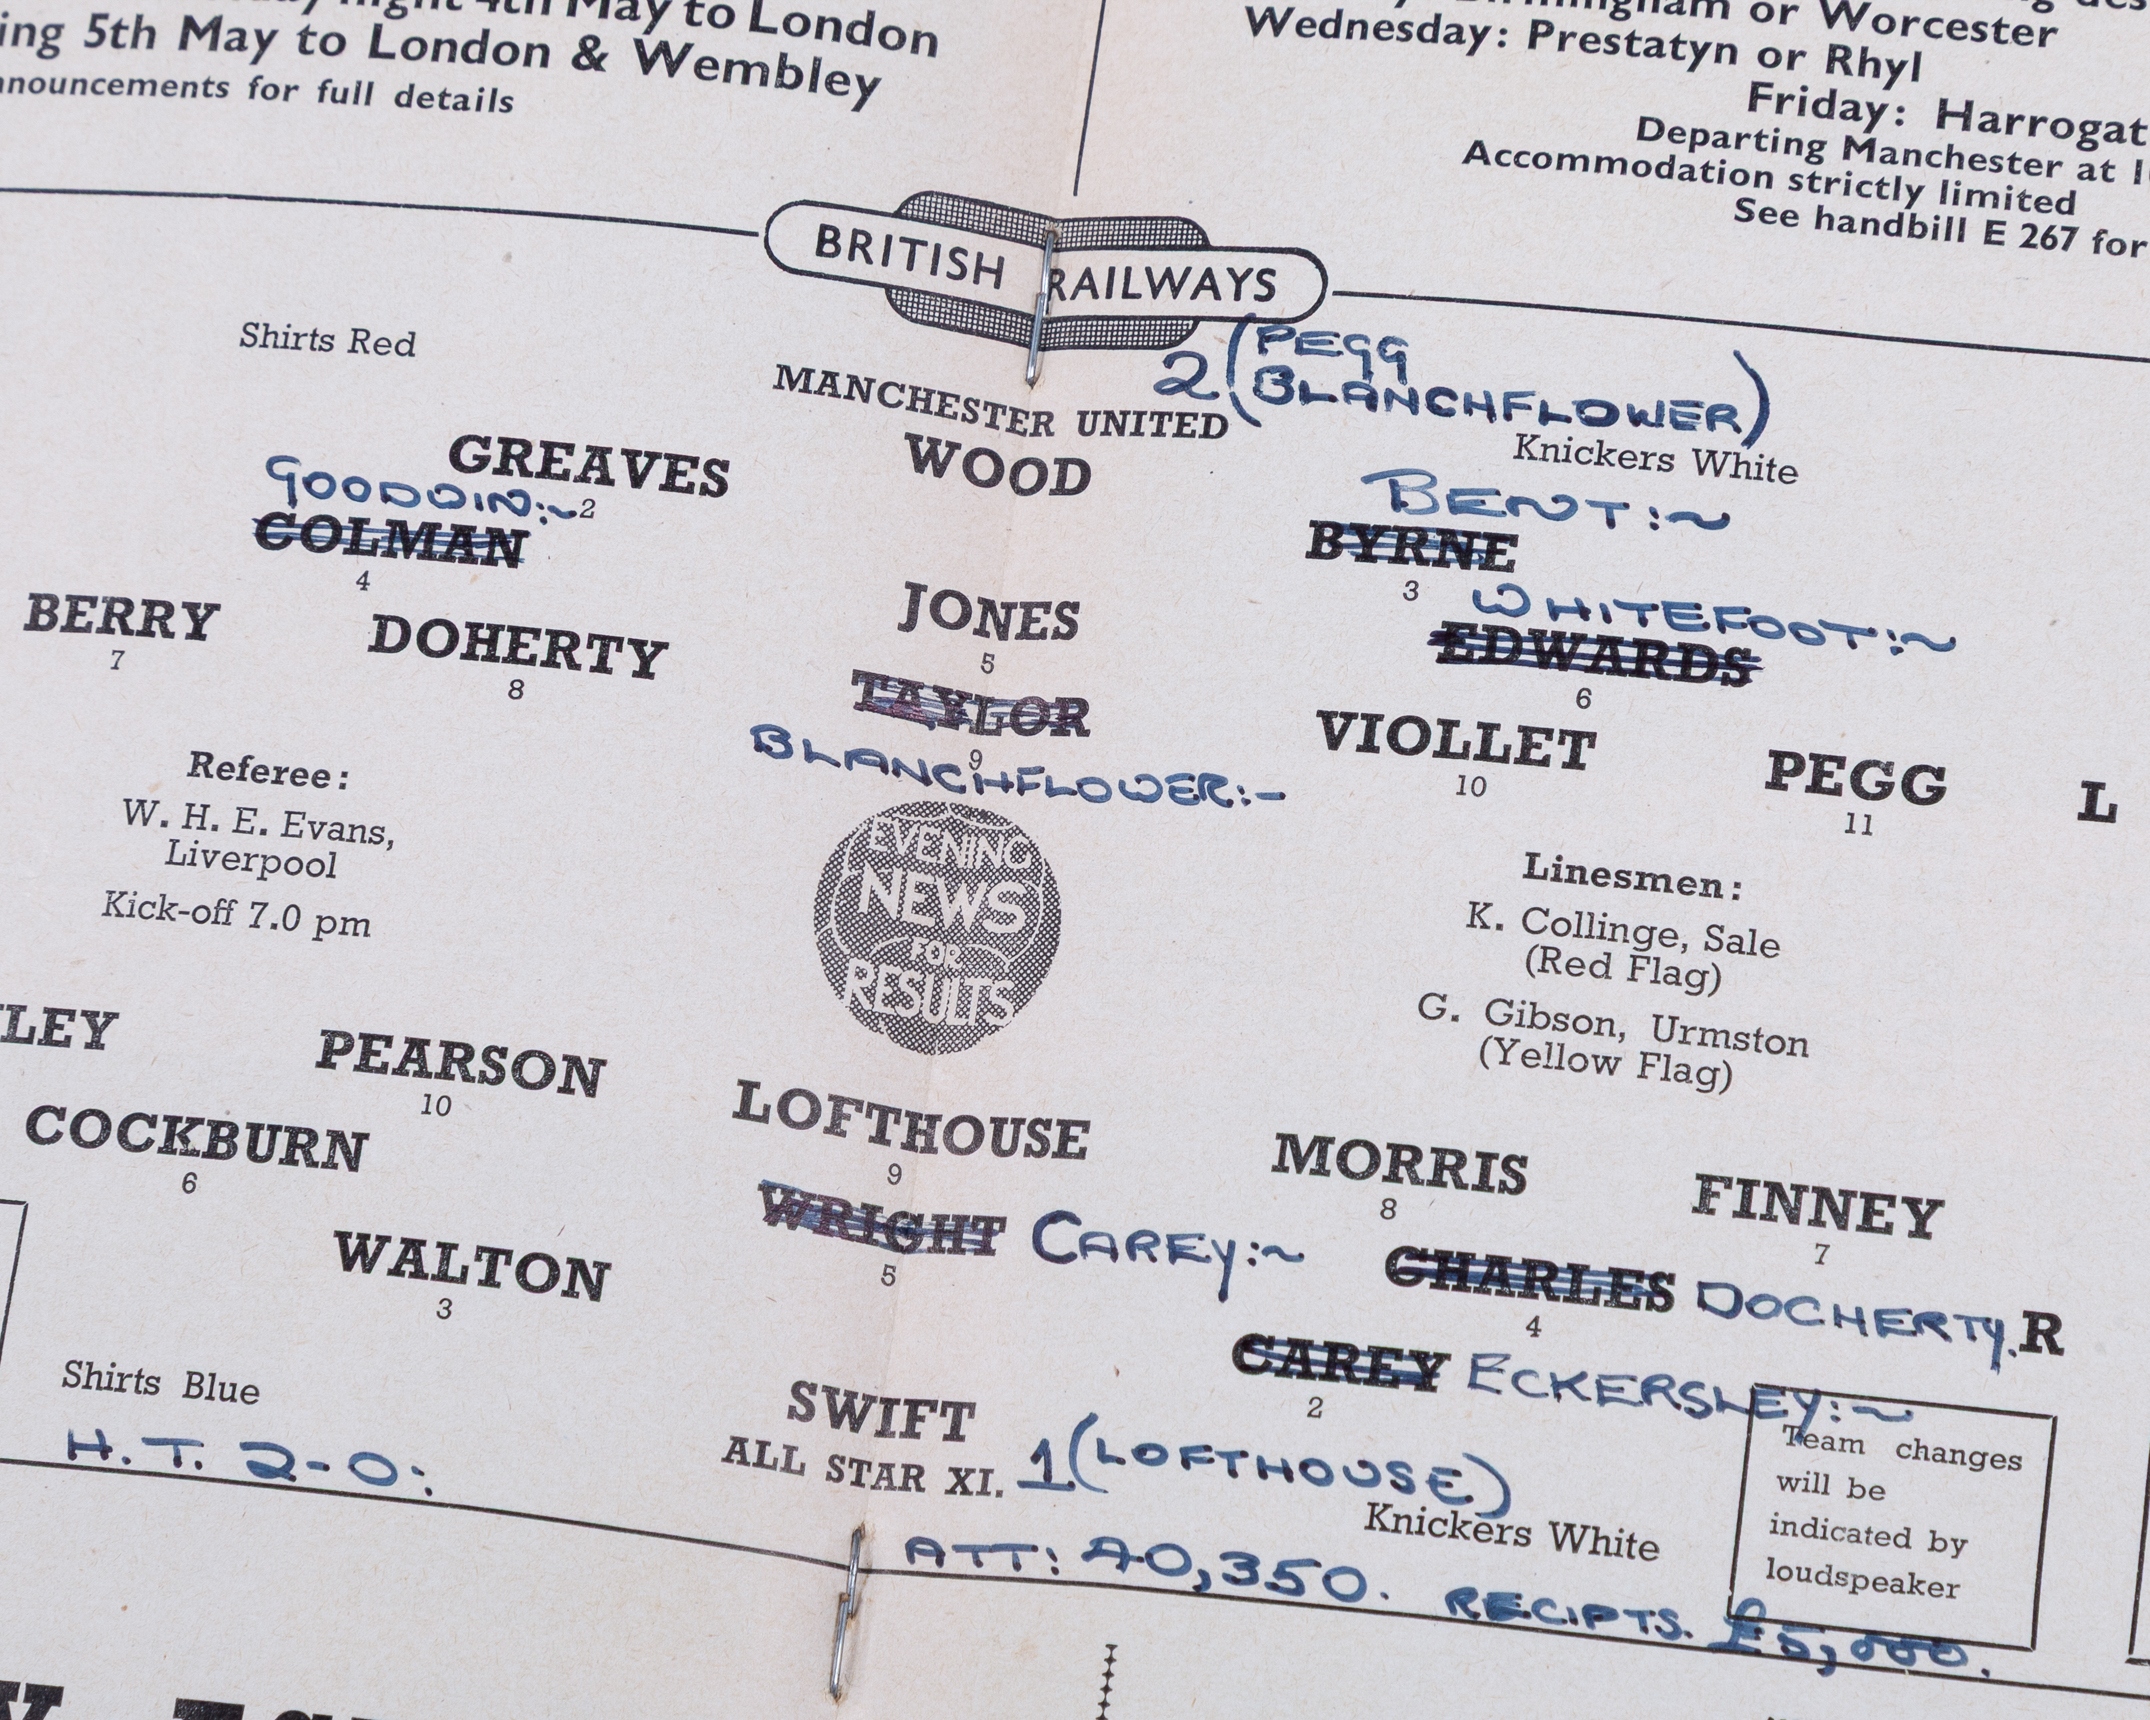 night 4th May to London
ing 5th May to London & Wembley
nnouncements for full details
Birmingham or Worcester
Wednesday: Prestatyn or Rhyl
Friday: Harrogat
Departing Manchester at 1
Accommodation strictly limited
See handbill E 267 for
BRITISH RAILWAYS
Shirts Red
MANCHESTER UNITED 2 (PEGG
BLANCHFLOWER)
Knickers White
GREAVES
2
WOOD
GOODWIN:~
COLMAN
4
BENT:~
BYRNE
3
JONES
5
WHITEFOOT:~
EDWARDS
6
BERRY
7
DOHERTY
8
TAYLOR
9
BLANCHFLOWER:-
VIOLLET
10
PEGG
11
L
Referee:
W. H. E. Evans,
Liverpool
Kick-off 7.0 pm
EVENING
NEWS
FOR
RESULTS
Linesmen:
K. Collinge, Sale
(Red Flag)
G. Gibson, Urmston
(Yellow Flag)
LEY
PEARSON
10
LOFTHOUSE
9
MORRIS
8
FINNEY
7
COCKBURN
6
WRIGHT CAREY:~
5
CHARLES DOCHERTY.
4
R
WALTON
3
CAREY ECKERSLEY:~
2
Shirts Blue
SWIFT
ALL STAR XI. 1 (LOFTHOUSE)
Knickers White
Team changes
will be
indicated by
loudspeaker
H.T. 2-0:
ATT: 40,350. RECIPTS. £5,000.